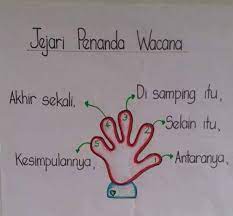 Jejari Penanda Wacana
Akhir sekali,
Di samping itu,
Selain itu,
Kesimpulannya,
Antaranya,
5
4
3
2